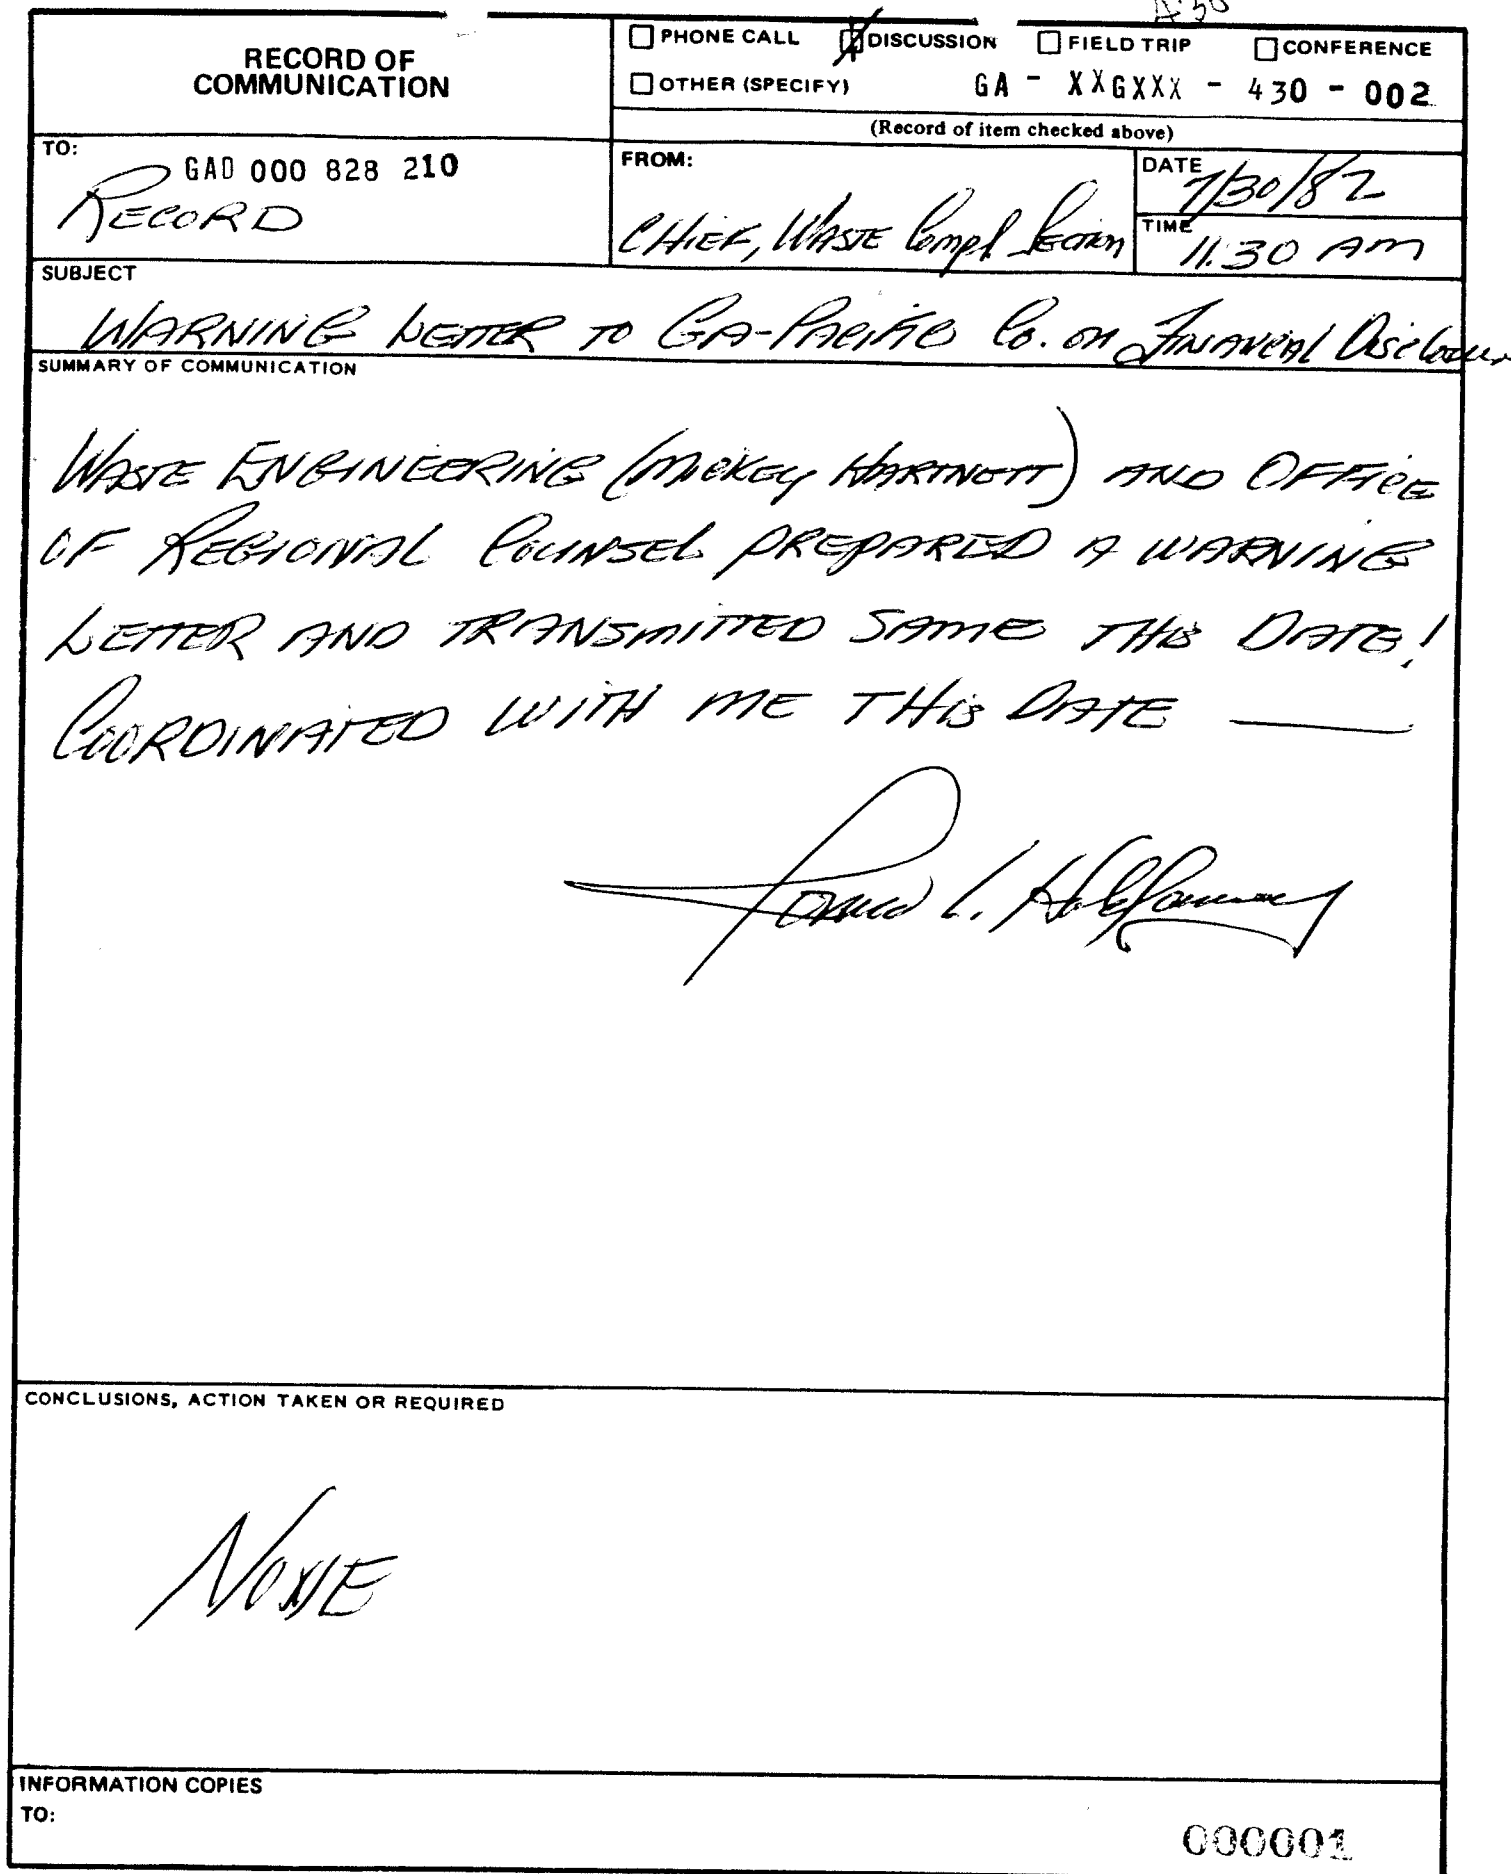 RECORD OF
COMMUNICATION
PHONE CALL DISCUSSION FIELD TRIP CONFERENCE
OTHER (SPECIFY) GA - XXGXXX - 430 - 002
(Record of item checked above)
TO:
GAD 000 828 210
RECORD
FROM:
CHIEF, WASTE Compl Section
DATE
7/30/82
TIME
11:30 AM
SUBJECT
WARNING LETTER TO GA-PACIFIC Co. on FINANCIAL Disclosure
SUMMARY OF COMMUNICATION
WASTE ENGINEERING (MICKEY HARTNETT) AND OFFICE
OF REGIONAL COUNSEL PREPARED A WARNING
LETTER AND TRANSMITTED SAME THIS DATE!
COORDINATED WITH ME THIS DATE
L.
CONCLUSIONS, ACTION TAKEN OR REQUIRED
NONE
INFORMATION COPIES
TO:
000001